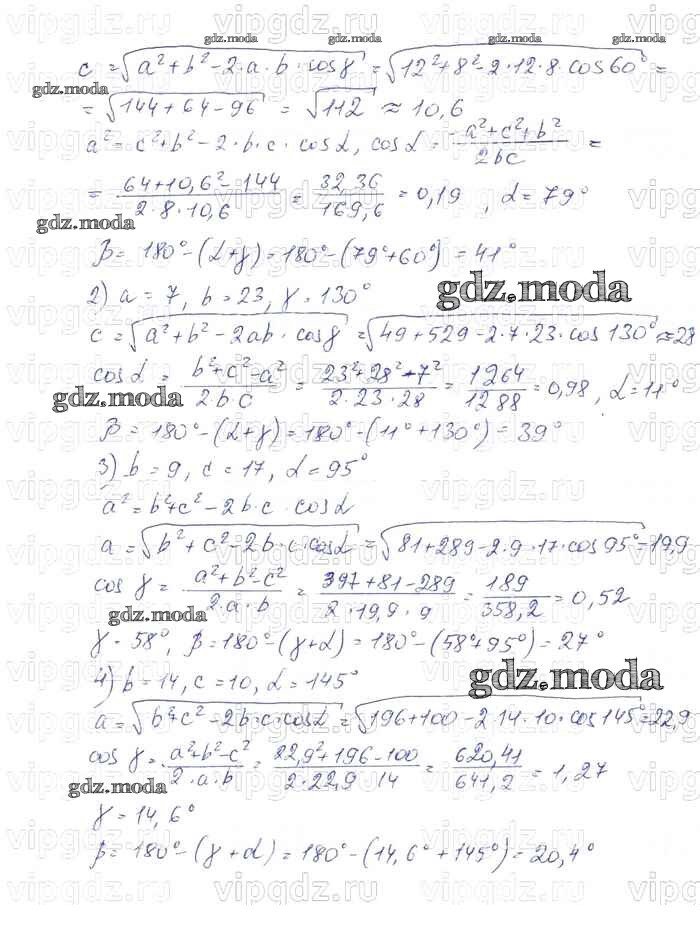 c = √(a² + b² - 2·a·b·cosγ) = √(12² + 8² - 2·12·8 cos60°) =
= √(144 + 64 - 96) = √112 ≈ 10,6
a² = c² + b² - 2·b·c·cosα, cosα = (-a² + c² + b²)/(2bc) =
= (64 + 10,6² - 144)/(2·8·10,6) = 32,36/169,6 = 0,19, α = 79°
β = 180° - (α + γ) = 180° - (79° + 60°) = 41°
2) a = 7, b = 23, γ = 130°
c = √(a² + b² - 2ab·cosγ) = √(49 + 529 - 2·7·23·cos130°) ≈ 28
cosα = (b² + c² - a²)/(2bc) = (23² + 28² + 7²)/(2·23·28) = 1264/1288 = 0,98, α = 11°
β = 180° - (α + γ) = 180° - (11° + 130°) = 39°
3) b = 9, c = 17, α = 95°
a² = b² + c² - 2b·c·cosα
a = √(b² + c² - 2b·c·cosα) = √(81 + 289 - 2·9·17·cos95°) = 19,9
cosγ = (a² + b² - c²)/(2·a·b) = (397 + 81 - 289)/(2·19,9·9) = 189/358,2 = 0,52
γ = 58°, β = 180° - (γ + α) = 180° - (58° + 95°) = 27°
4) b = 14, c = 10, α = 145°
a = √(b² + c² - 2b·c·cosα) = √(196 + 100 - 2·14·10·cos145°) = 22,9
cosγ = (a² + b² - c²)/(2·a·b) = (22,9² + 196 - 100)/(2·22,9·14) = 620,41/641,2 = 1,27
γ = 14,6°
β = 180° - (γ + α) = 180° - (14,6° + 145°) = 20,4°
gdz.moda
vipgdz.ru